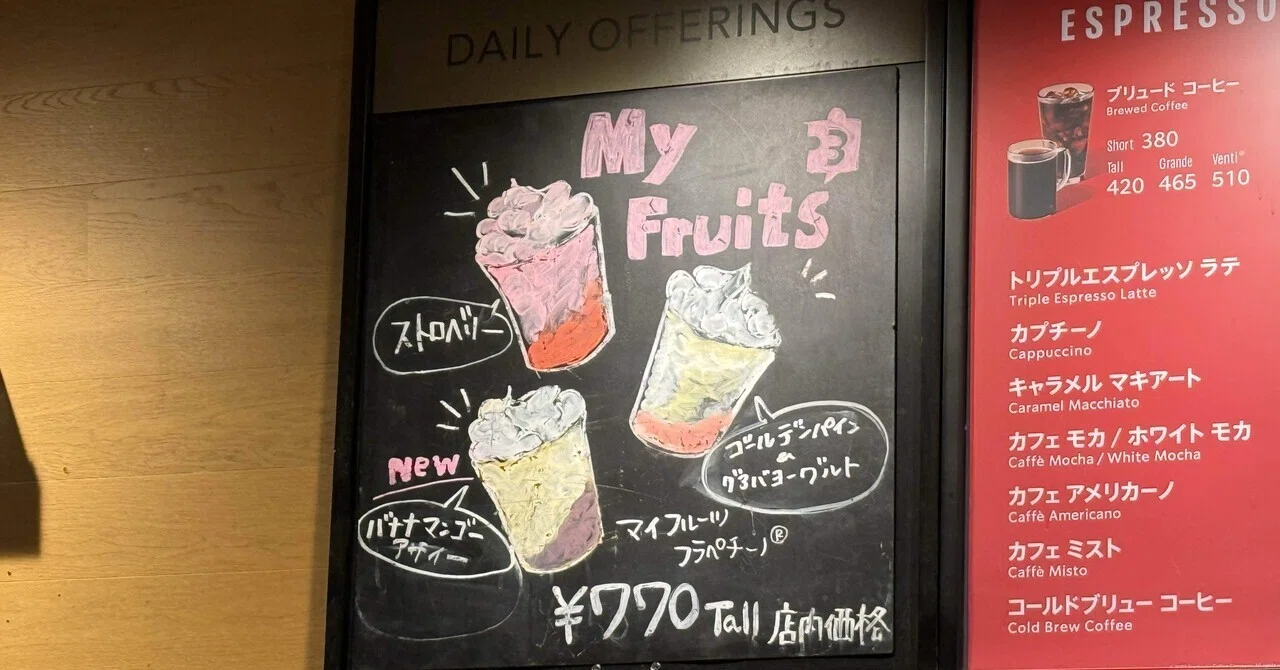 DAILY OFFERINGS
My 3
Fruits
ストロベリー
ゴールデンパイン
&
グァバヨーグルト
New
バナナマンゴー
アサイー
マイフルーツ
フラペチーノ®
¥770 Tall 店内価格
ESPRESSO
ブリュード コーヒー
Brewed Coffee
Short 380
Tall Grande Venti®
420 465 510
トリプルエスプレッソ ラテ
Triple Espresso Latte
カプチーノ
Cappuccino
キャラメル マキアート
Caramel Macchiato
カフェ モカ / ホワイト モカ
Caffè Mocha / White Mocha
カフェ アメリカーノ
Caffè Americano
カフェ ミスト
Caffè Misto
コールドブリュー コーヒー
Cold Brew Coffee